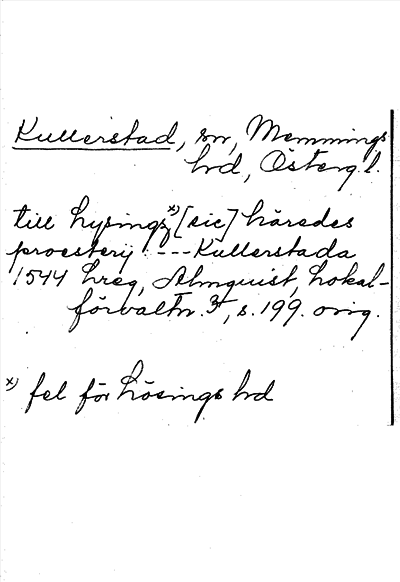 Kullerstad, sn, Memmings
hd, Österg.l.
till hysingz x) [sic] häredes
proesterij: --- Kullerstada
1544 hreg, Almquist, Lokal-
förvaltn. 3, s. 199. orig.
x) fel för hösings hd